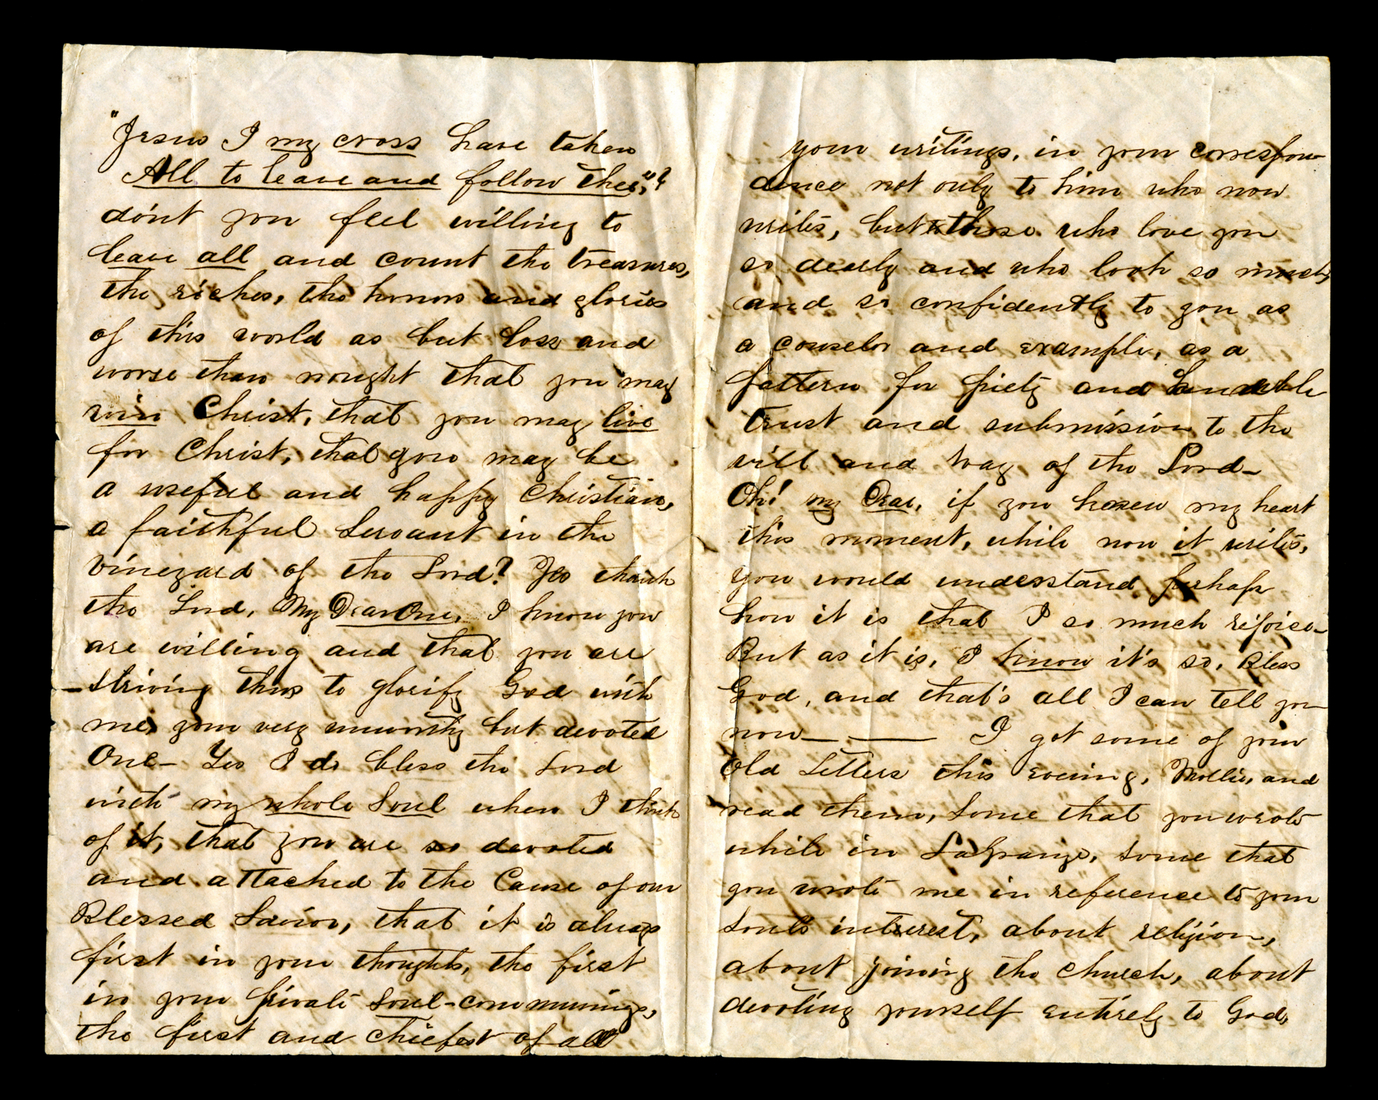 "Jesus I my cross have taken
All to leave and follow thee,"?
don't you feel willing to
leave all and count the treasures,
the riches, the honors and glories
of this world as but loss and
worse than nought that you may
win Christ, that you may live
for Christ, that you may be
a useful and happy Christian,
a faithful servant in the
vineyard of the Lord? Yes thank
the Lord, My Dear One, I know you
are willing and that you are
striving thus to glorify God with
me, your very unworthy but devoted
One— Yes I do bless the Lord
with my whole Soul when I think
of it, that you are so devoted
and attached to the Cause of our
Blessed Savior, that it is always
first in your thoughts, the first
in your private soul-communings,
the first and chiefest of all
your writings, in your correspon-
dence not only to him who now
writes, but to those who love you
so dearly and who look so much
and so confidently to you as
a counselor and example, as a
pattern for piety and humble
trust and submission to the
will and way of the Lord—
Oh! my Dear, if you knew my heart
this moment, while now it writes,
you would understand perhaps
how it is that I so much rejoice—
But as it is, I know it's so, Bless
God, and that's all I can tell you
now— — I got some of your
Old Letters this evening, Mollie, and
read them, some that you wrote
while in LaGrange, some that
you wrote me in reference to your
souls interest, about religion,
about joining the church, about
devoting yourself entirely to God,